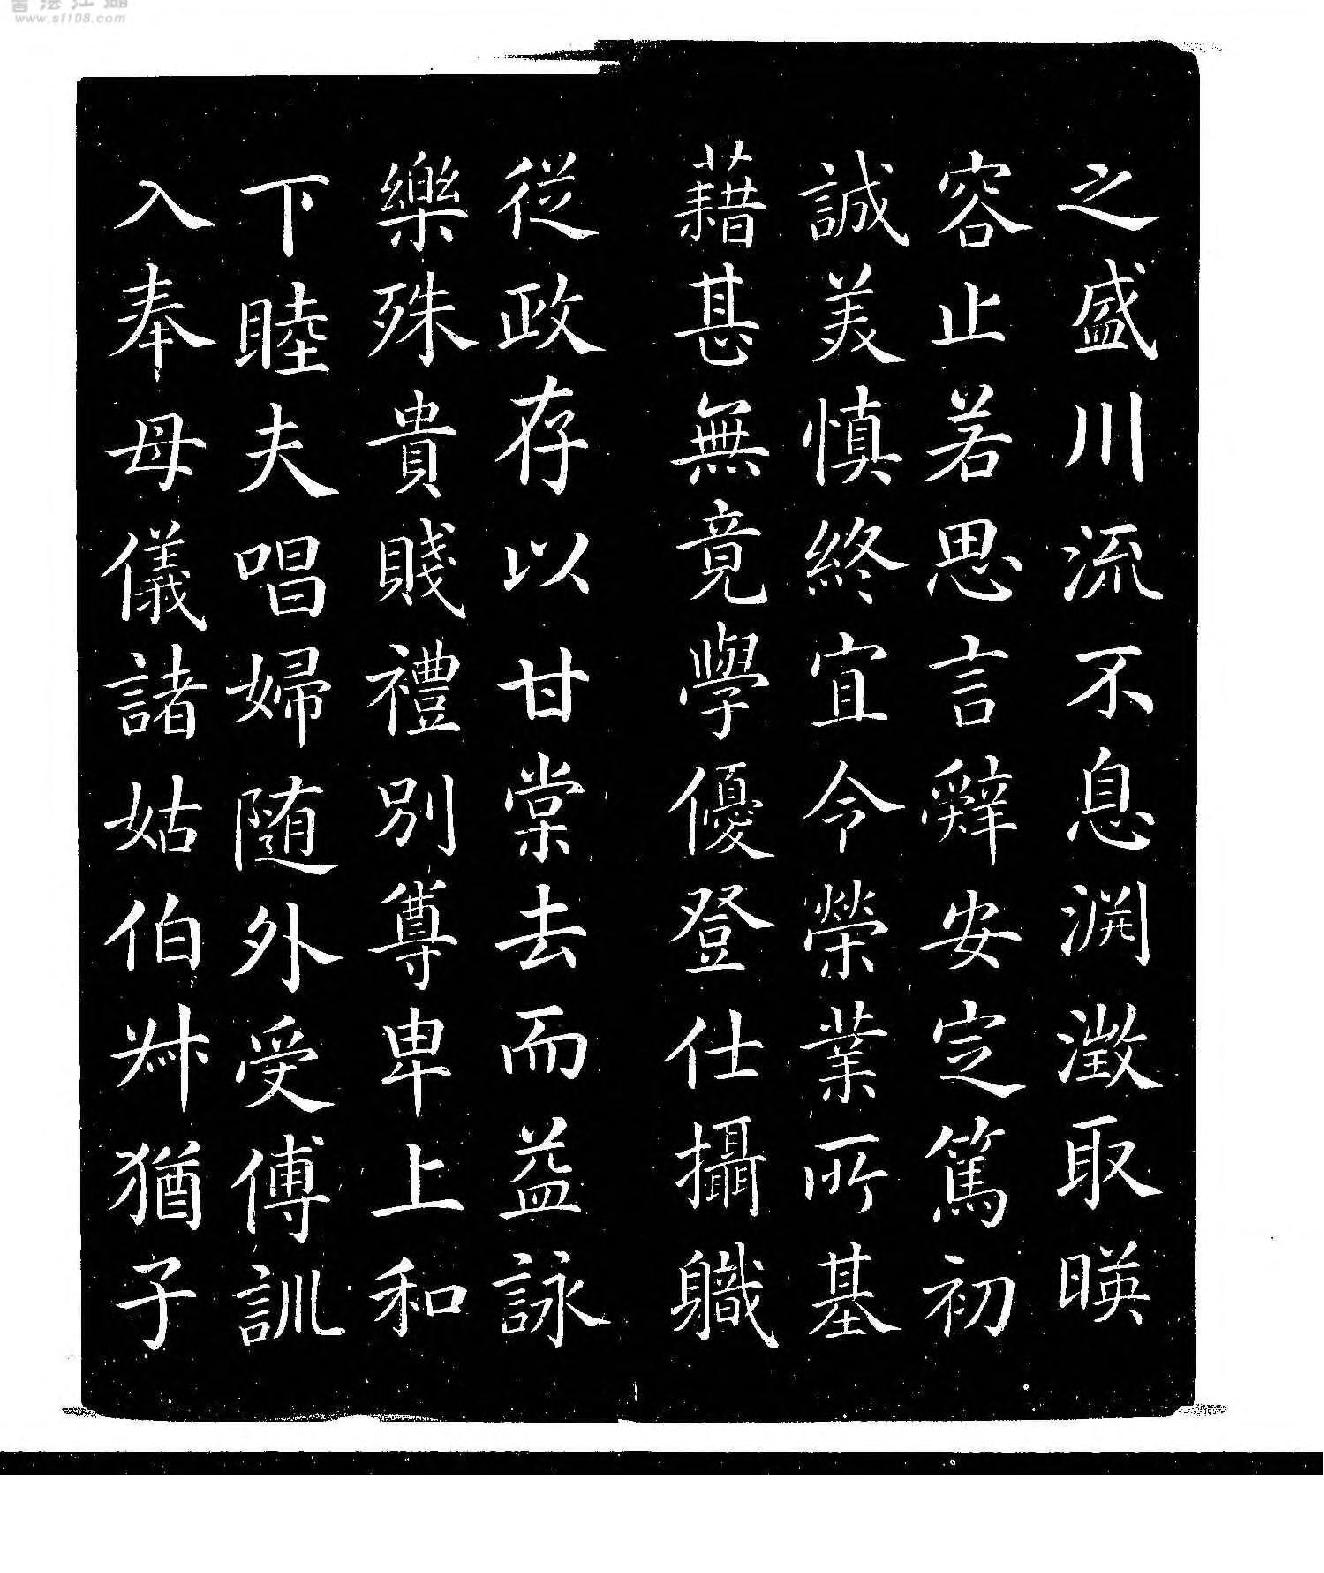 書法江湖
www.sf108.com
之盛川流不息渊澂取暎
容止若思言辤安定篤初
誠美慎終宜令榮業所基
藉甚無竟學優登仕攝軄
從政存以甘棠去而益詠
樂殊貴賤禮別尊卑上和
下睦夫唱婦随外受傅訓
入奉母儀諸姑伯叔猶子